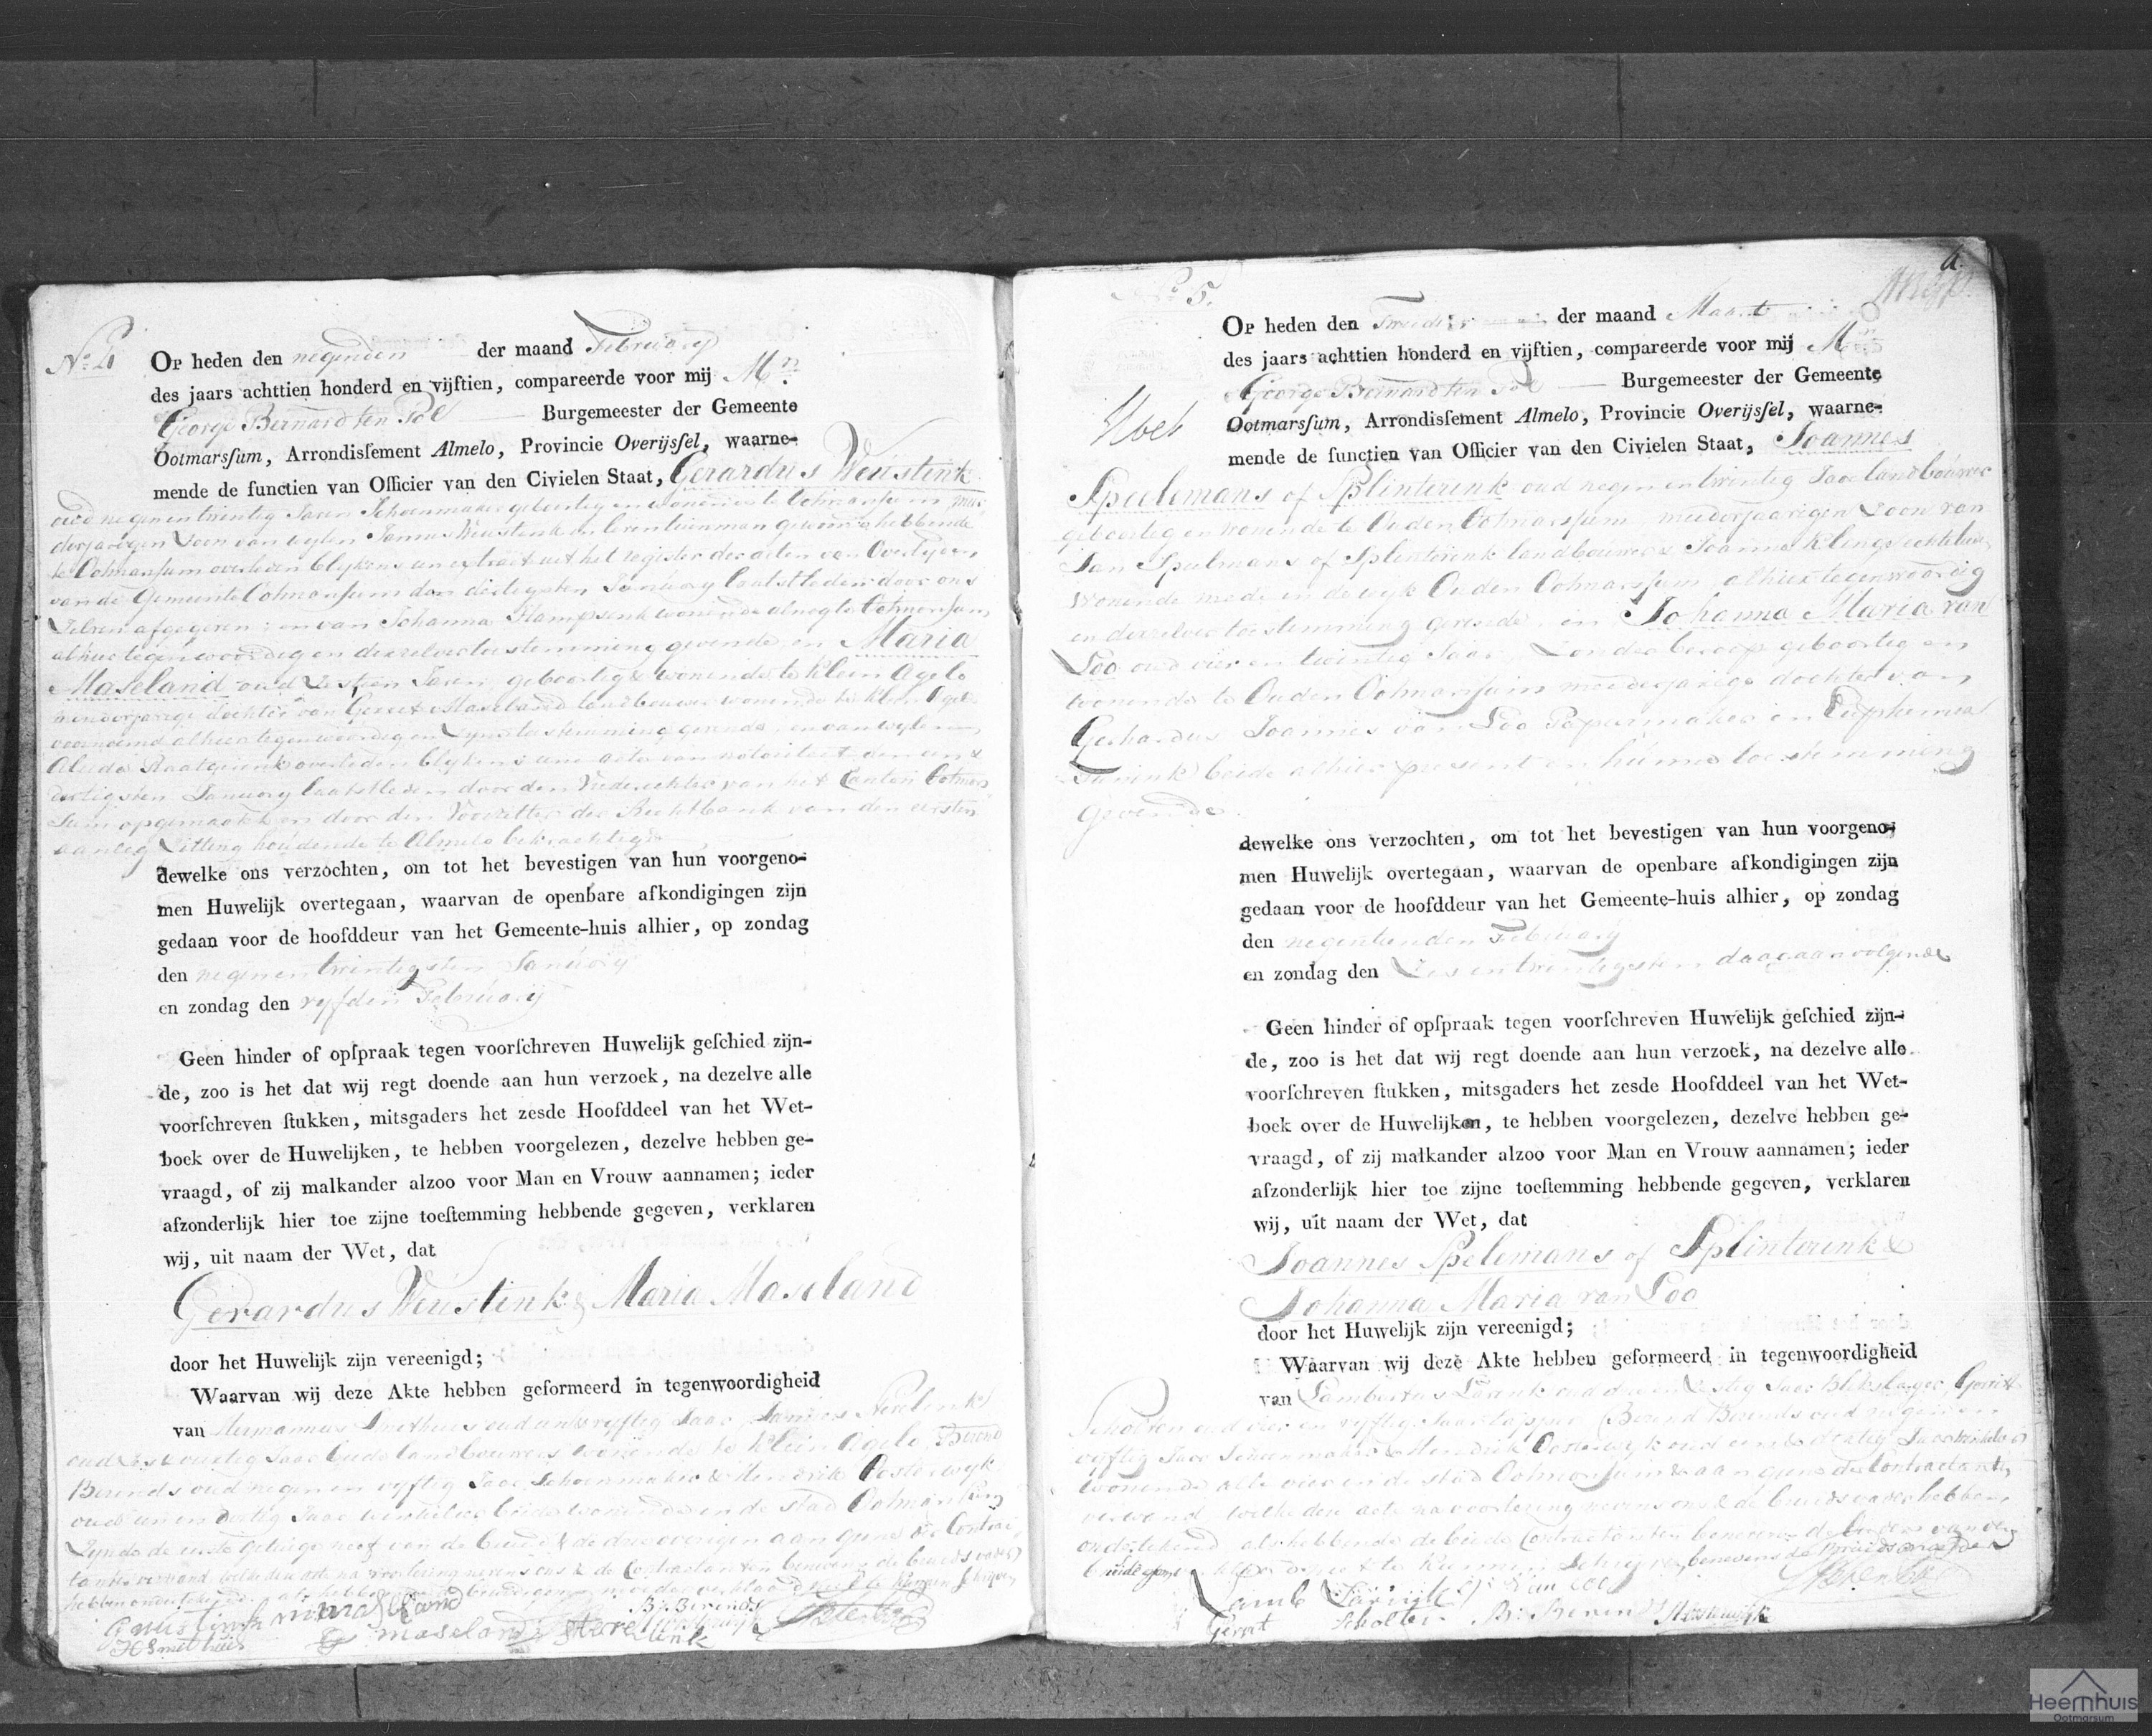 No. 4
Op heden den negenden der maand February
des jaars achttien honderd en vijftien, compareerde voor mij Mr.
George Bernard ten Pol Burgemeester der Gemeente
Ootmarsſum, Arrondisſement Almelo, Provincie Overijsſel, waarne-
mende de functien van Officier van den Civielen Staat, Gerardus Weustink
oud negenentwintig Jaren Schoenmaker geboortig en wonende te Ootmarsum, meer
derjarigen Zoon van wylen Jannes Weustink in leven gewoond hebbende
te Ootmarsum overleden blykens een extract uit het register der acten van Overlyden
van de Gemeente Ootmarsum den dertigsten January laatstleden door ons
Zelven afgegeven; en van Johanna wonende alnog te Ootmarsum
alhier tegenwoordig en derzelver toestemming gevende, en Maria
Maseland oud Zestien Jaren geboortig & wonende te Klein Agelo
minderjarige dochter van Gerrit Maseland landbouwer wonende te Klein Agelo
voornoemd alhier tegenwoordig en Zyne toestemming gevende, en van wylen
Aleida overleden blykens une acte van notoriteit den een &
dertigsten January laatstleden door den Vrederechter van het Canton Ootmar
sum opgemaakt en door den Voorzitter der Rechtbank van den eersten
aanleg Zitting houdende te Almelo bekrachtigd
dewelke ons verzochten, om tot het bevestigen van hun voorgeno-
men Huwelijk overtegaan, waarvan de openbare afkondigingen zijn
gedaan voor de hoofddeur van het Gemeente-huis alhier, op zondag
den negenentwintigsten January
en zondag den vyfden February
Geen hinder of opſpraak tegen voorſchreven Huwelijk geſchied zijn-
de, zoo is het dat wij regt doende aan hun verzoek, na dezelve alle
voorſchreven ſtukken, mitsgaders het zesde Hoofddeel van het Wet-
boek over de Huwelijken, te hebben voorgelezen, dezelve hebben ge-
vraagd, of zij malkander alzoo voor Man en Vrouw aannamen; ieder
afzonderlijk hier toe zijne toeſtemming hebbende gegeven, verklaren
wij, uit naam der Wet, dat
Gerardus Weustink & Maria Maseland
door het Huwelijk zijn vereenigd;
Waarvan wij deze Akte hebben geformeerd in tegenwoordigheid
van Hermannus Smithuis oud vyftig Jaar, Jannes
oud Jaar beide landbouwers wonende te Klein Agelo, Berend
Berends oud negen en vyftig Jaar Schoenmaker & Hendrik Oosterwyk
oud een en dertig Jaar winkelier beide wonende in de stad Ootmarsum
Zynde de eerste getuige neef van de bruid & de drie overigen aan gene der Contrac
tanten verwand, welke den acte na voorlezing nevens ons & de Contractanten benevens de bruids vader
hebben ondertekend
G Weustink Maria Maseland B: Berends
H Smithuis G maseland
No. 5.
6.
Op heden den Tweeden der maand Maart
des jaars achttien honderd en vijftien, compareerde voor mij Mr.
George Bernard ten Pol Burgemeester der Gemeente
Ootmarsſum, Arrondisſement Almelo, Provincie Overijsſel, waarne-
mende de functien van Officier van den Civielen Staat, Joannes
Speelemans of Splinterink oud negen en twintig Jaar landbouwer
geboortig en wonende te Ouden Ootmarssum, meederjaarigen Zoon van
Jan Spelmans of Splinterink landbouwer & Joanna Klinge echtelieden
wonende mede in de wyk Ouden Ootmarssum, alhier tegenwoordig
en derzelver toestemming gevende, en Johanna Maria van
Loo oud vier en twintig Jaar, Zonder beroep geboortig en
wonende te Ouden Ootmarssum meederjarige dochter van
Gerhardus Joannes van Loo Papiermaker en Euphemia
beide alhier present en hunne toestemming
gevende.
dewelke ons verzochten, om tot het bevestigen van hun voorgeno-
men Huwelijk overtegaan, waarvan de openbare afkondigingen zijn
gedaan voor de hoofddeur van het Gemeente-huis alhier, op zondag
den negentienden February
en zondag den Zes en twintigsten daaraanvolgende
Geen hinder of opſpraak tegen voorſchreven Huwelijk geſchied zijn-
de, zoo is het dat wij regt doende aan hun verzoek, na dezelve alle
voorſchreven ſtukken, mitsgaders het zesde Hoofddeel van het Wet-
boek over de Huwelijken, te hebben voorgelezen, dezelve hebben ge-
vraagd, of zij malkander alzoo voor Man en Vrouw aannamen; ieder
afzonderlijk hier toe zijne toeſtemming hebbende gegeven, verklaren
wij, uit naam der Wet, dat
Joannes Spelemans of Splinterink &
Johanna Maria van Loo
door het Huwelijk zijn vereenigd;
Waarvan wij deze Akte hebben geformeerd in tegenwoordigheid
van Lambertus oud drie en Zestig Jaar Blikslager, Gerrit
Scholten oud vier en vyftig Jaar Tapper, Berend Berends oud negen en
vyftig Jaar Schoenmaker & Hendrik Oosterwyk oud een & dertig Jaar winkelier
wonende alle vier in de stad Ootmarssum & aan gene der Contractanten
verwand, welke den acte na voorlezing nevens ons & de bruids vader hebben
ondertekend, als hebbende de beide Contractanten benevens de ouders van den
bruidegom verklaard niet te kunnen Schryven, benevens de Bruids moeder
Lamb van Loo
Gerrit Scholten B: Berends H Oosterwijk
Heemhuis
Ootmarsum